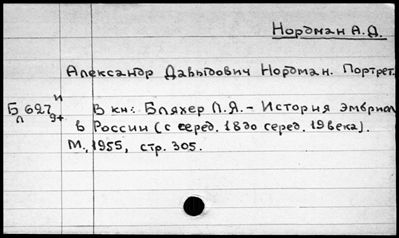 Нордман А.Д.
Александр Давыдович Нордман. Портрет.
Б 627 и
л 9+
В кн: Бляхер Л.Я. - История эмбриол
в России (с серед. 18 до серед. 19 века).
М, 1955, стр. 305.